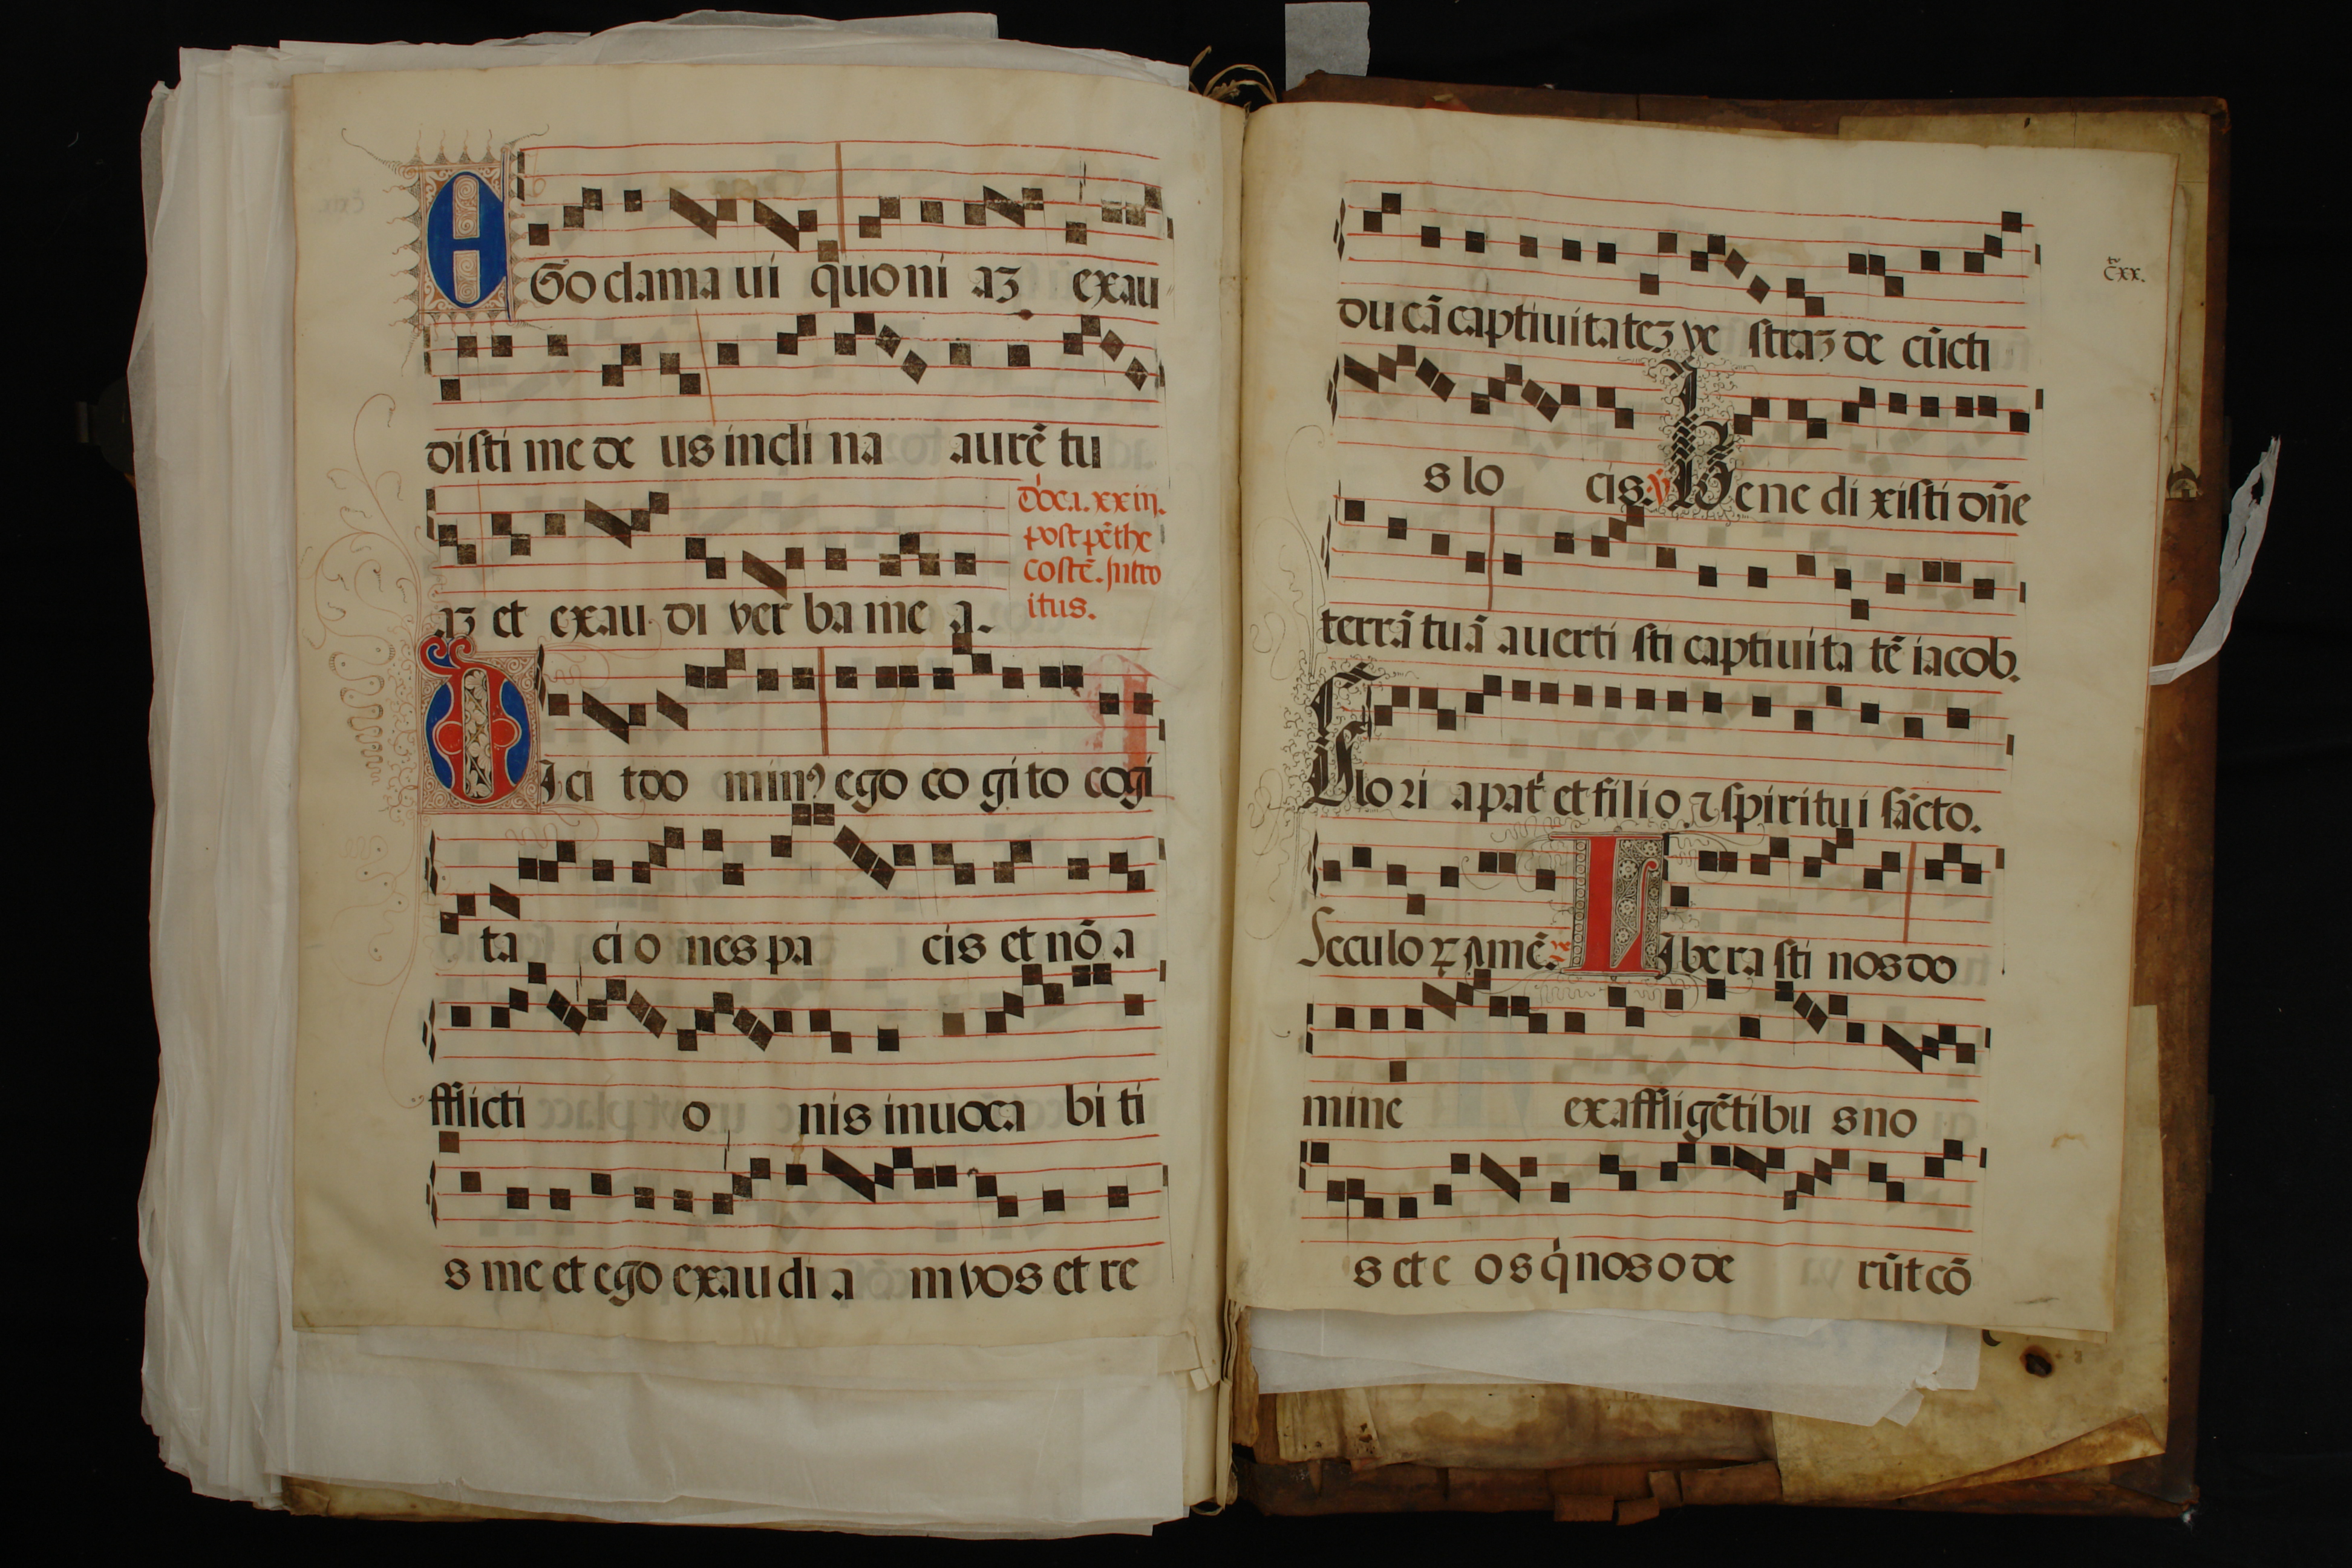 EGo clama ui quo ni aʒ exau
disti me de us incli na aurē tu
aʒ et exau di ver ba me a.
dōca. xxiij.
post pēthe
costē. Intro
itus.
DIci tdo minꝰ ego co gi to cogi
ta ci o nes pa cis et nō a
fflicti o nis inuoca bi ti
s me et ego exau di a m vos et re
c̄xx.
du cā captiuitateʒ ve straʒ de cūcti
s lo cis. ℣ Bene di xisti dn̄e
terrā tuā auerti sti captiuita tē iacob.
Glo ri a pat̄ et fili o ⁊ spiritu i sācto.
Seculoꝝ Amē. LIbera sti nos do
mine ex affligētibu s no
s et e os q̇ nos o de rūt cō